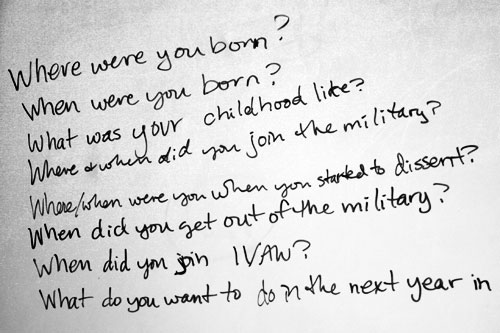 Where were you born?
When were you born?
What was your childhood like?
Where & when did you join the military?
Where/when were you when you started to dissent?
When did you get out of the military?
When did you join IVAW?
What do you want to do in the next year in